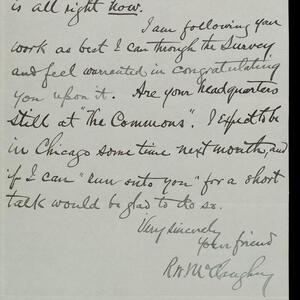 is all right now.
I am following your
work as best I can through the Survey
and feel warranted in congratulating
you upon it. Are your headquarters
still at "The Commons". I expect to be
in Chicago some time next month, and
if I can "run onto you" for a short
talk would be glad to do so.
Very sincerely
Your friend
R W McClaughry